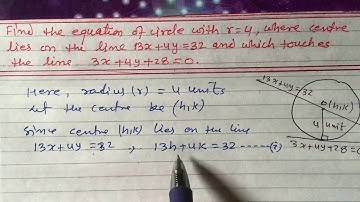 Find the equation of circle with r=4, where centre
lies on the line 13x+4y=32 and which touches
the line 3x+4y+28=0.
Here, radius (r) = 4 units
let the centre be (h,k)
Since centre (h,k) lies on the line
13x+4y=32, 13h+4k=32-----(i)
13x+4y=32
(h,k)
4 unit
3x+4y+28=0